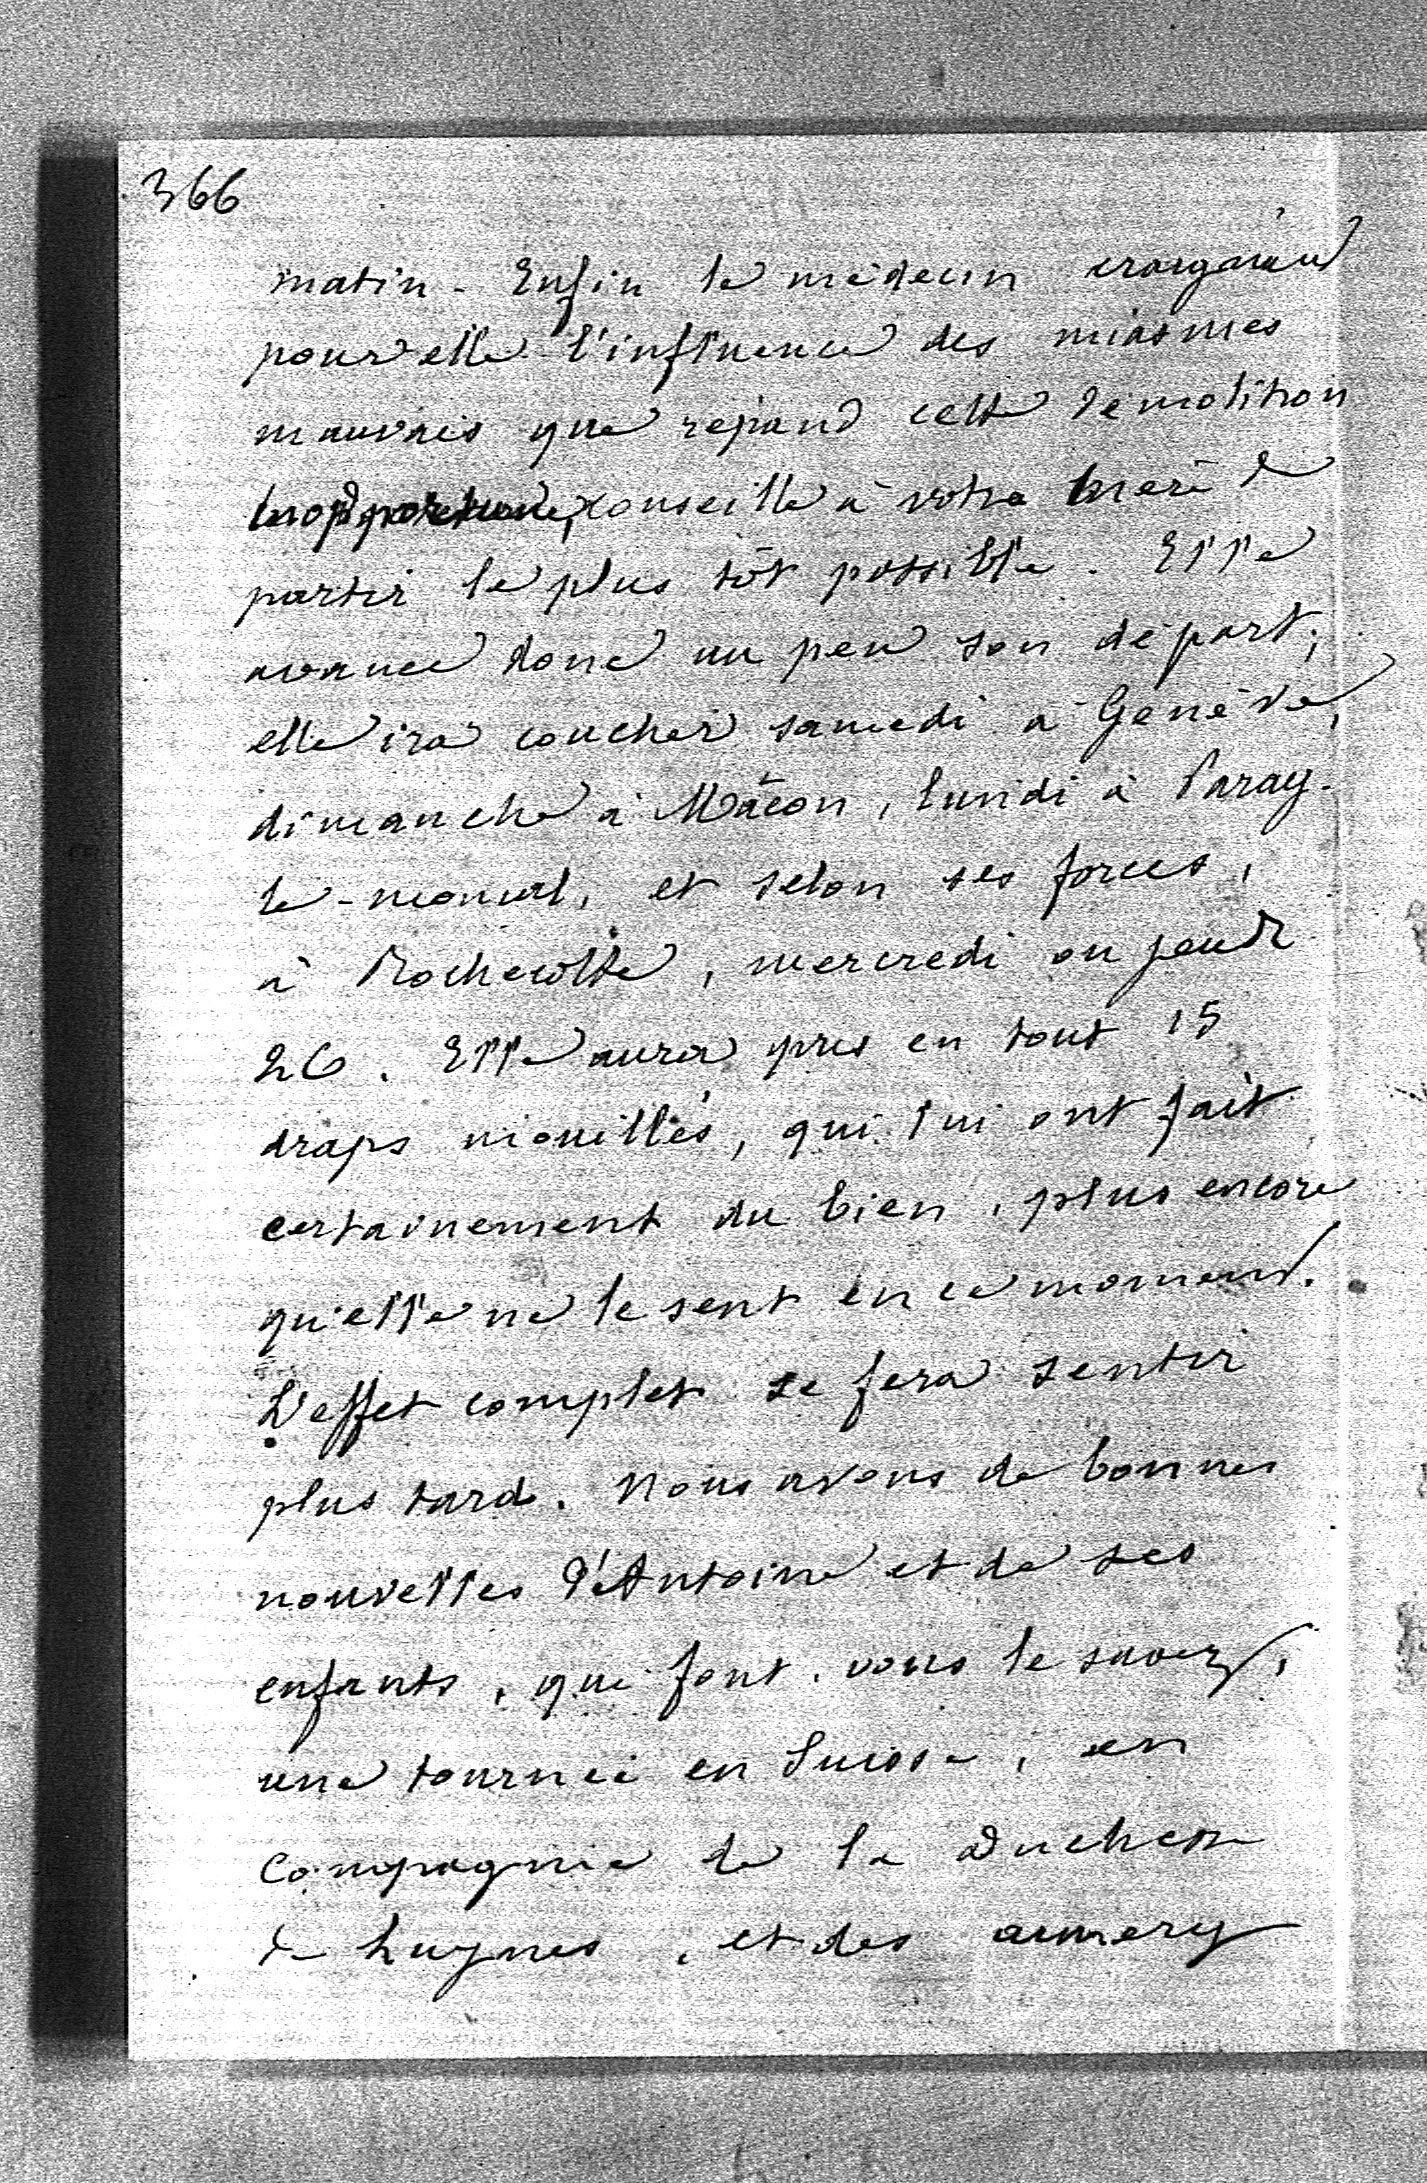 366
matin. Enfin le médecin craignant
pour elle l'influence des miasmes
mauvais que répand cette démolition
inopportune, conseille à votre mère de
partir le plus tôt possible. Elle
avance donc un peu son départ;
elle ira coucher samedi à Genève,
dimanche à Mâcon, lundi à Paray-
le-monial, et selon ses forces,
à Rochecotte, mercredi ou jeudi
26. Elle aura pris en tout 15
draps mouillés, qui lui ont fait
certainement du bien, plus encore
qu'elle ne le sent en ce moment.
L'effet complet se fera sentir
plus tard. Nous avons de bonnes
nouvelles d'Antoine et de ses
enfants, qui font, vous le savez,
une tournée en Suisse, en
compagnie de la Duchesse
de Luynes, et des